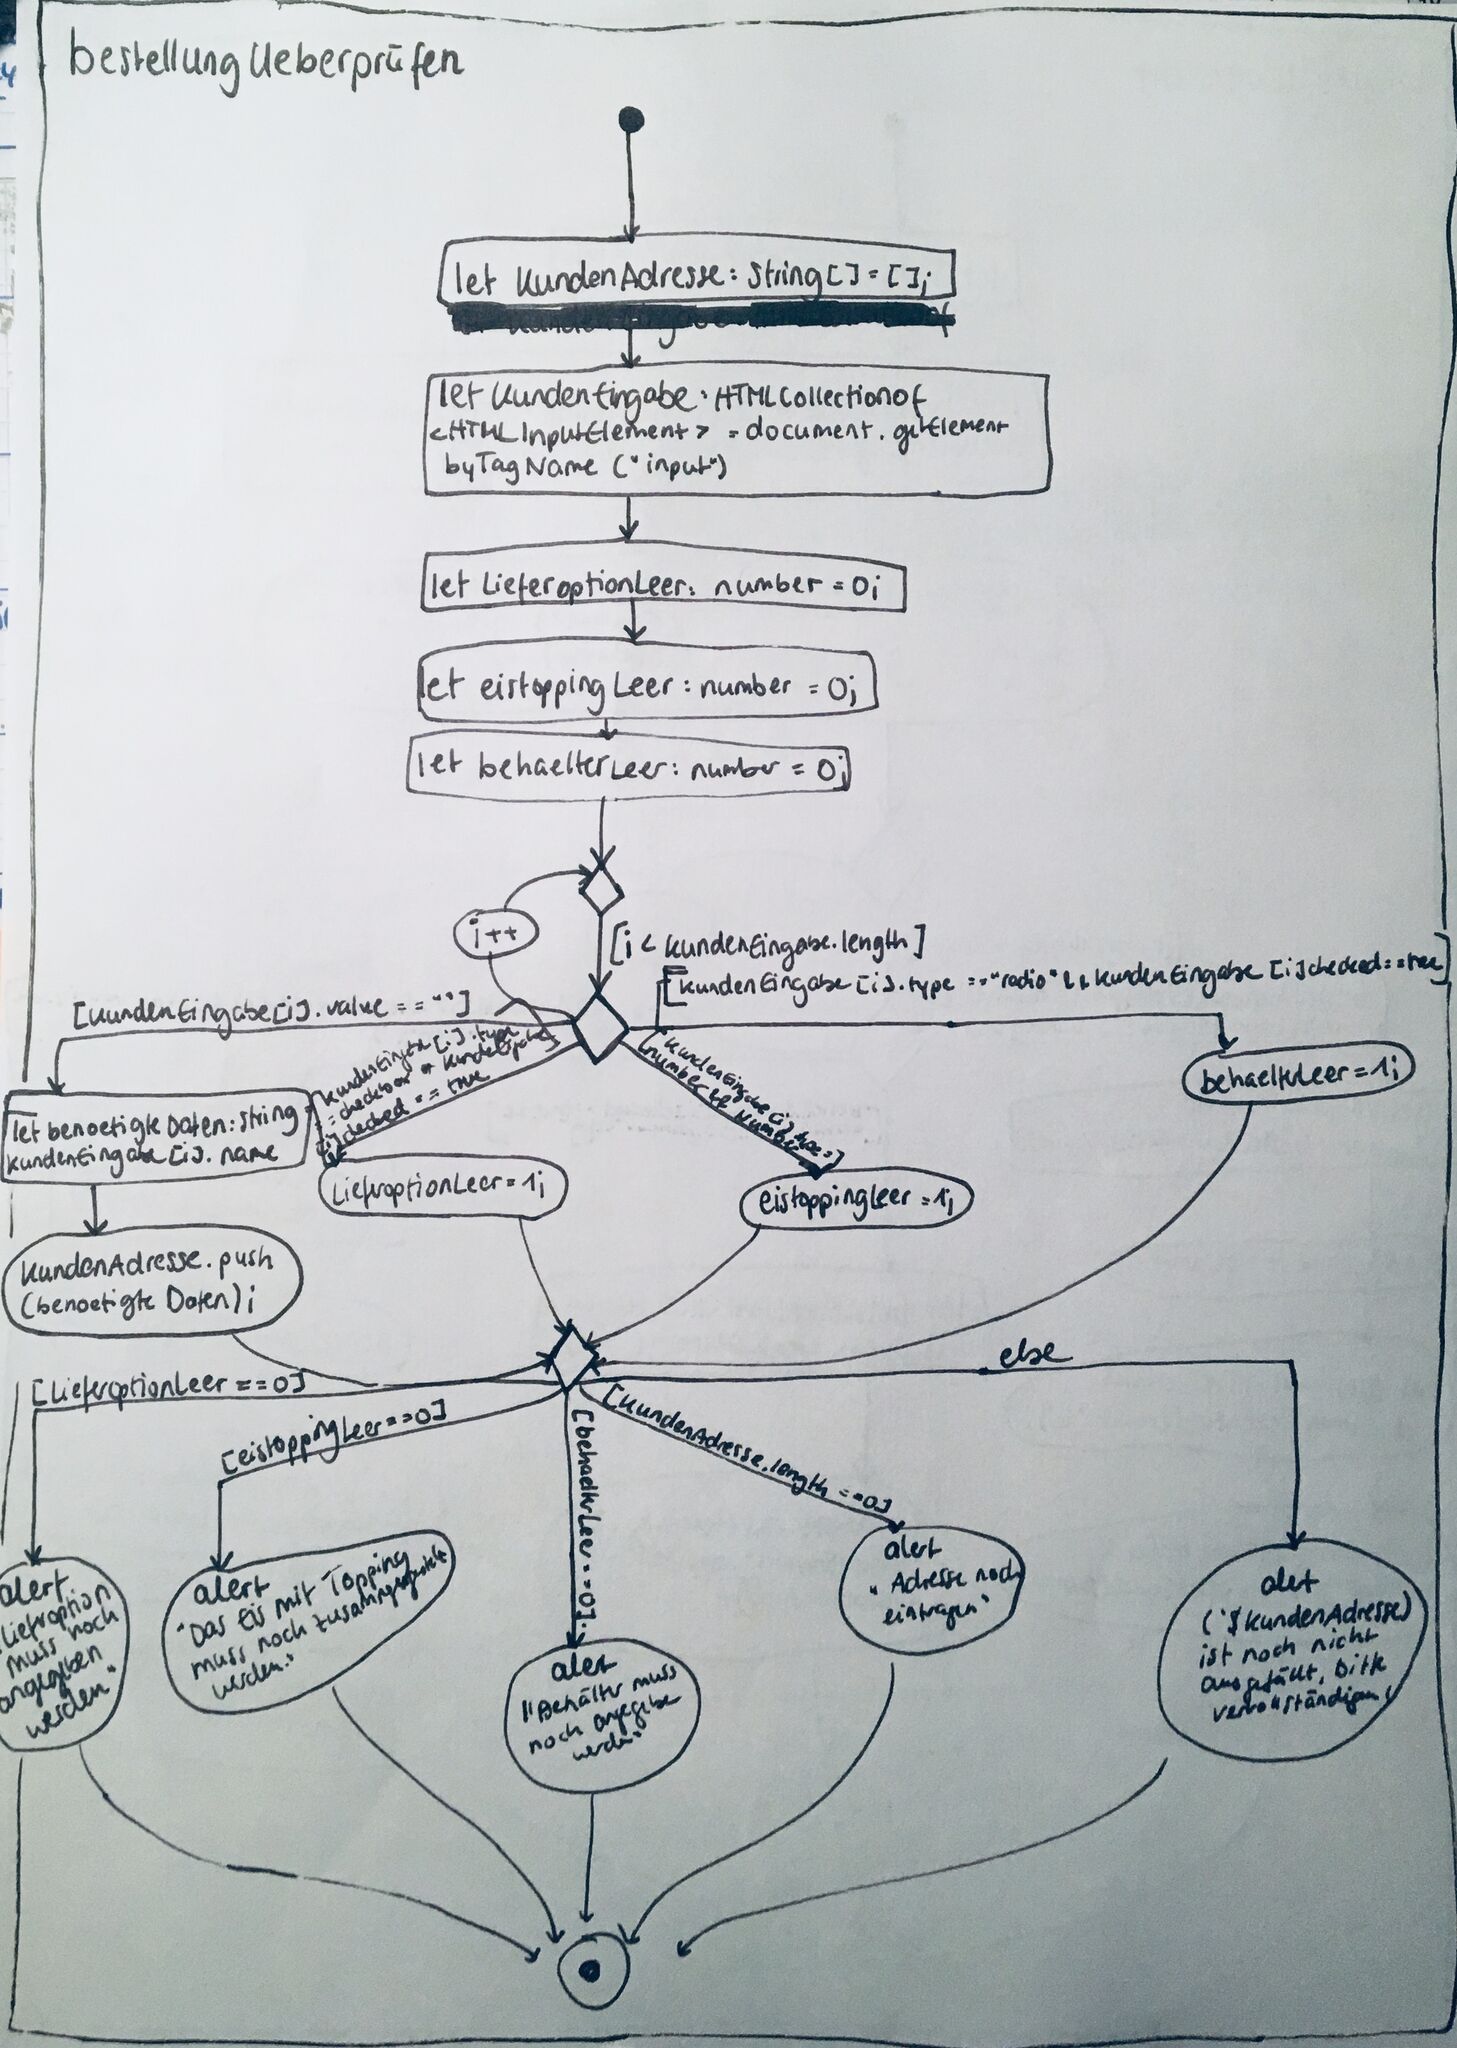 bestellungUeberprüfen
let KundenAdresse: String[] = [];
let KundenEingabe: HTMLCollectionOf
<HTMLInputElement> = document.getElement
byTagName ("input")
let LieferoptionLeer: number = 0;
let eistoppingLeer: number = 0;
let behaelterLeer: number = 0;
i++
[i < KundenEingabe.length]
[KundenEingabe[i].type == "radio" && KundenEingabe [i]checked==true]
[KundenEingabe[i].value == ""]
KundenEingabe[i].type
== checkbox KundenEingabe
[i]checked == true
[KundenEingabe[i].type=
number && Number]
behaelterLeer=1;
let benoetigte Daten: String =
KundenEingabe [i]. name
LieferoptionLeer=1;
eistoppingLeer =1;
KundenAdresse.push
(benoetigte Daten);
else
[LieferoptionLeer ==0]
[eistoppingLeer==0]
[behaelterLeer==0].
[KundenAdresse.length ==0]
alert
Lieferoption
muss noch
angegeben
werden"
alert
"Das Eis mit Topping
muss noch zusammengestellt
werden."
alert
"Behälter muss
noch angegeben
werden"
alert
"Adresse noch
eintragen"
alert
(`$KundenAdresse)
ist noch nicht
ausgefüllt, bitte
vervollständigen!